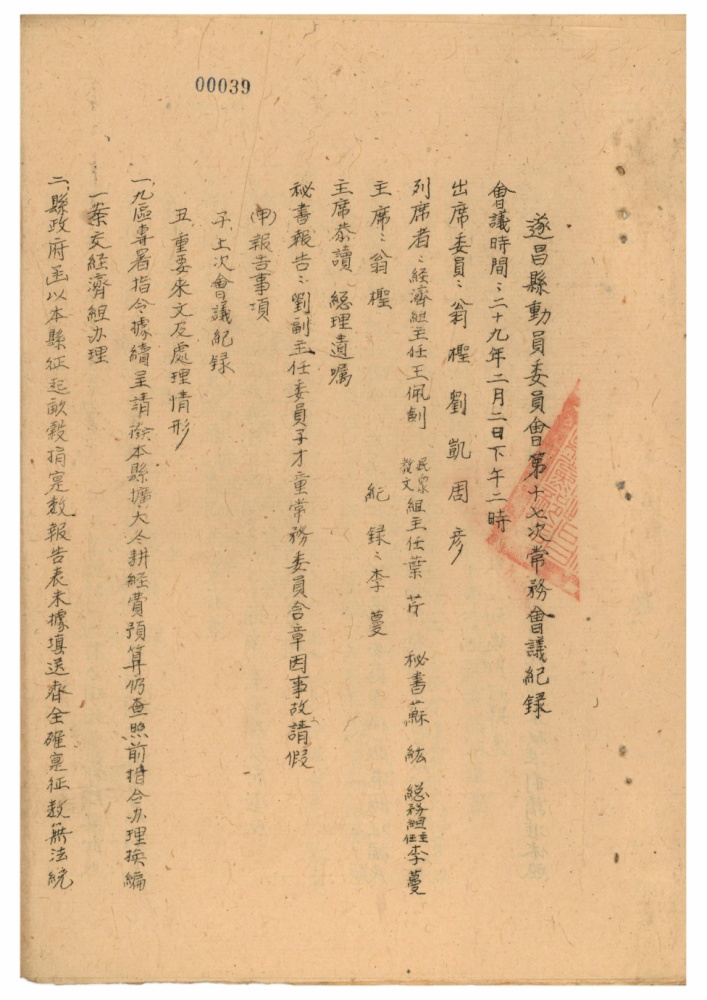 00039
遂昌縣動員委員會第十七次常務會議紀錄
會議時間：二十九年二月二日下午二時
出席委員：翁檉 劉凱 周彥
列席者：經濟組主任王佩劍 民眾教文組主任葉芬 秘書蘇紘 總務組主任李蔓
主席：翁檉 紀錄：李蔓
主席恭讀 總理遺囑
秘書報告：劉副主任委員子才童常務委員含章因事故請假
(甲)報告事項
子、上次會議紀錄
丑、重要來文及處理情形
一、九區專署指令據續呈請撥本縣擴大冬耕經費預算仍查照前指令办理換編
一案交經濟組办理
二、縣政府函以本縣征起畝穀捐寔數報告表未據填送齊全確寔征數無法統